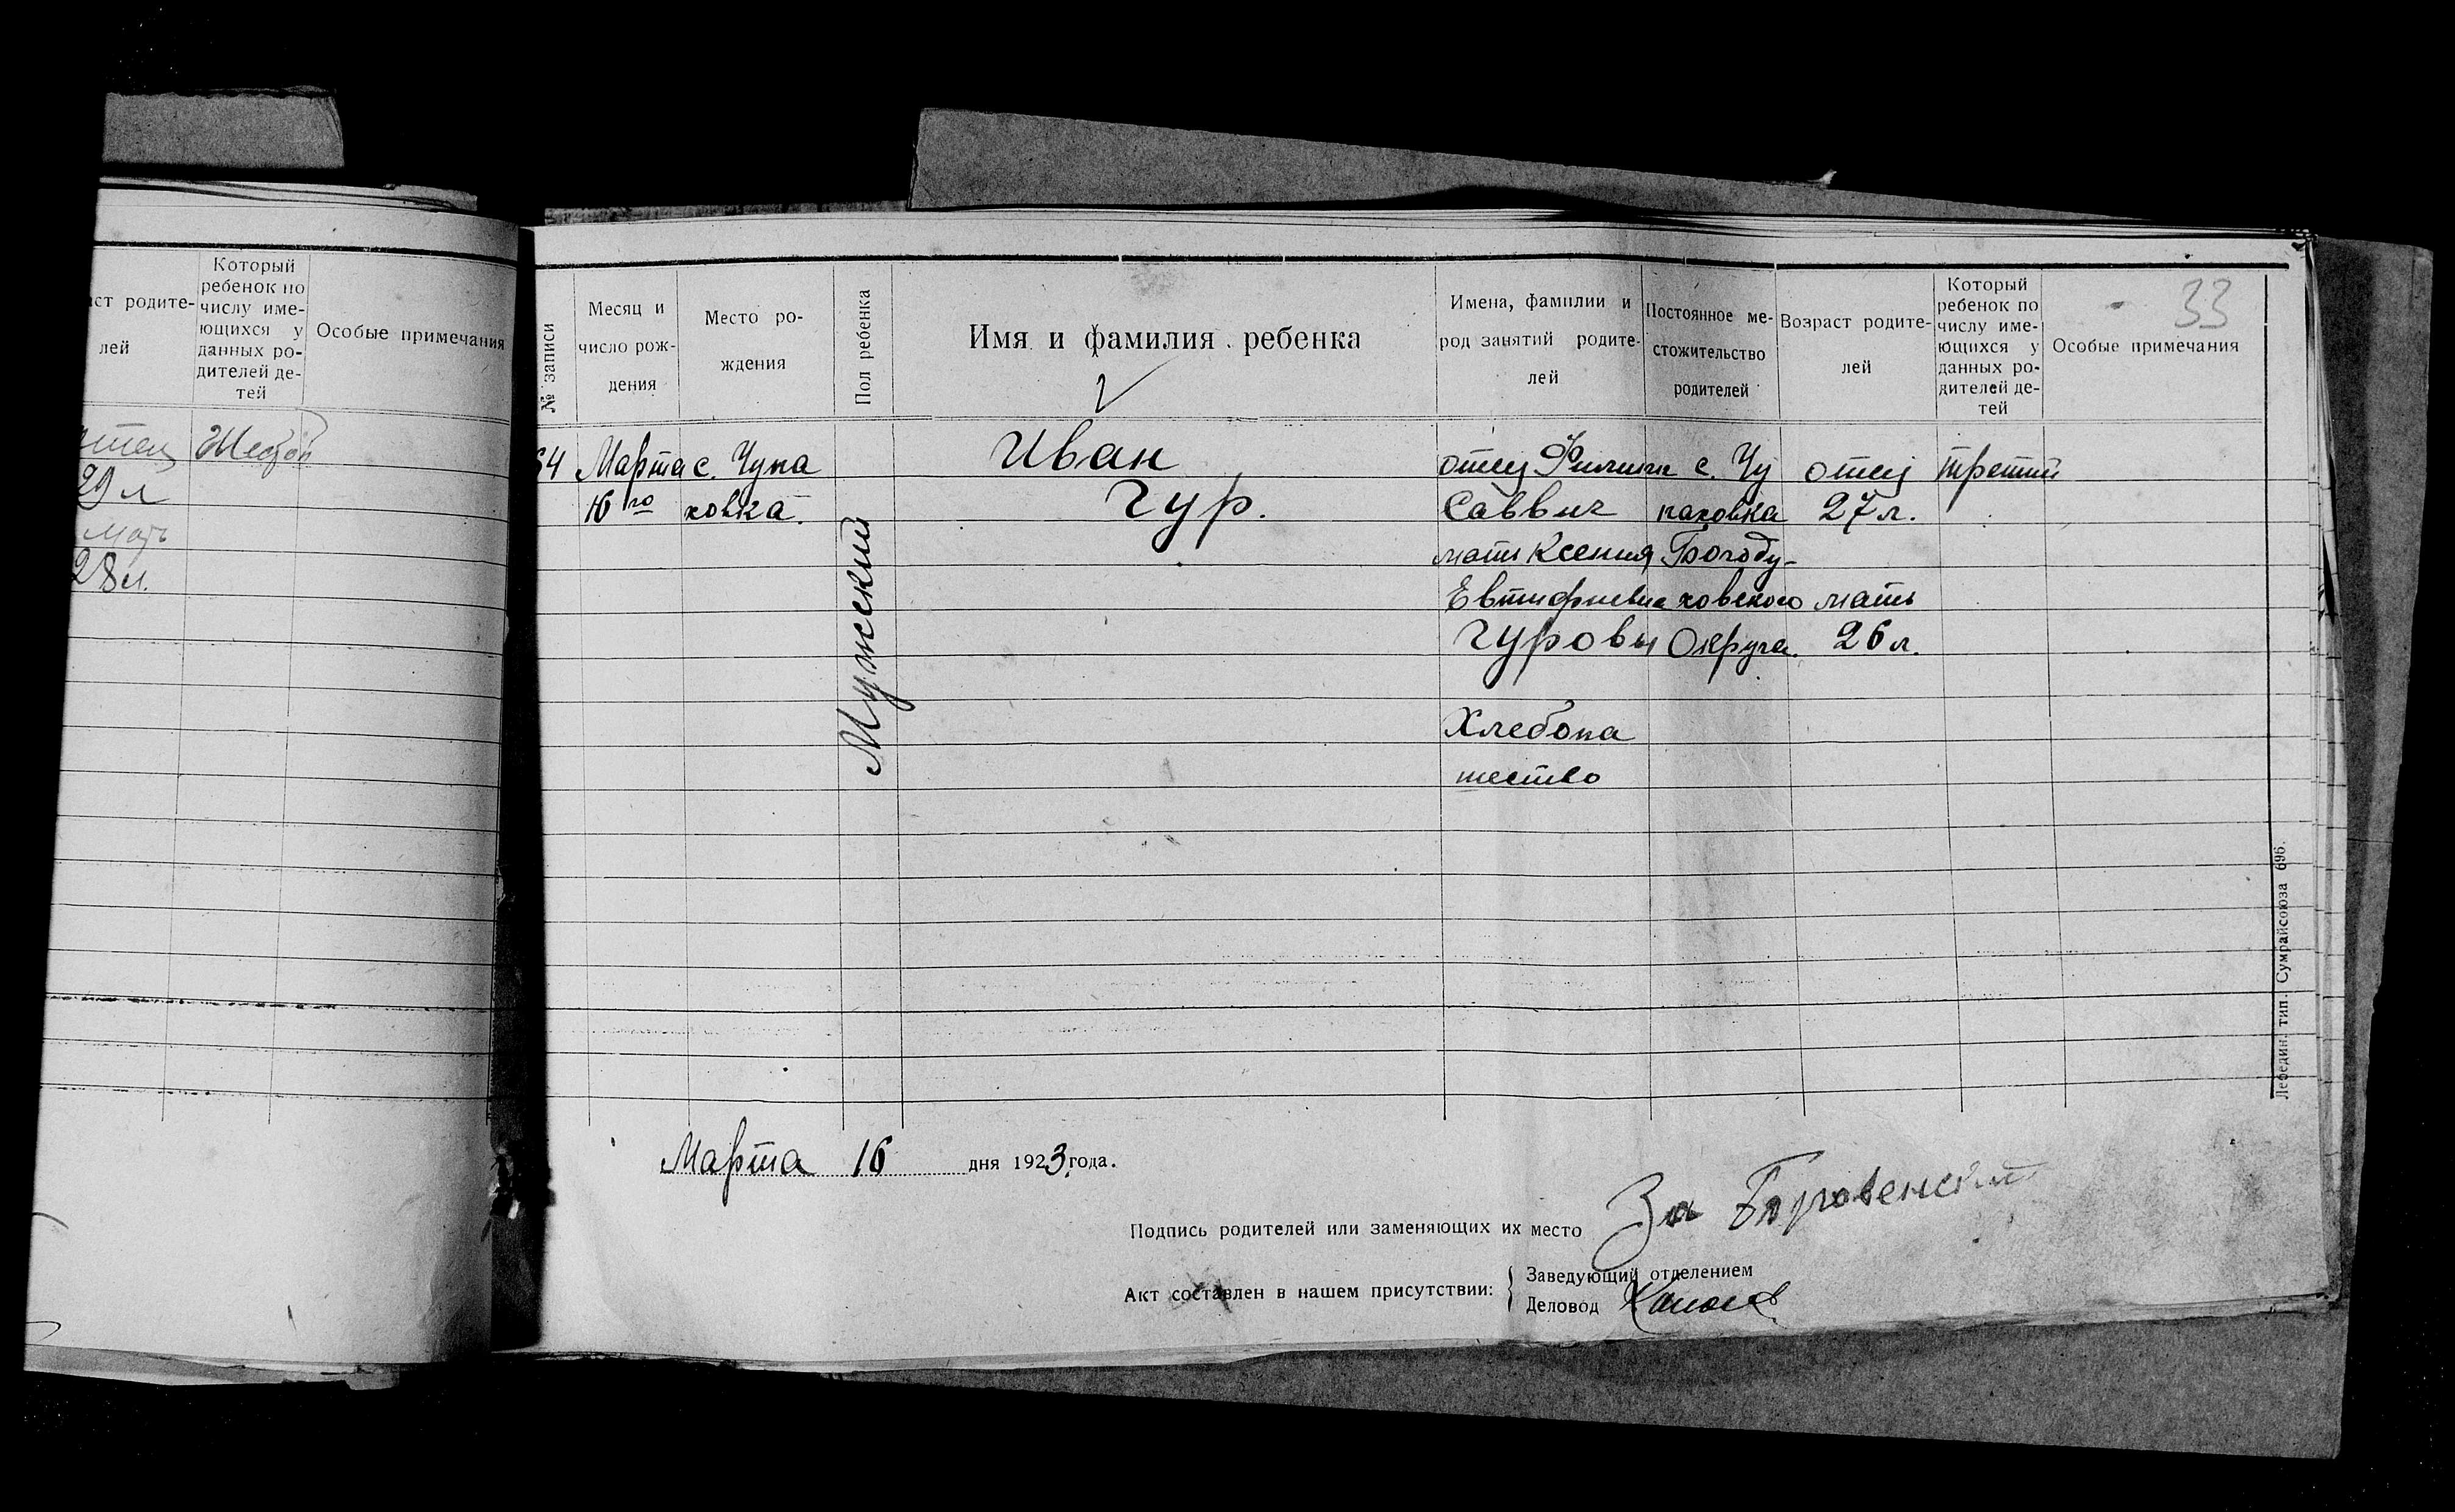 ст родите-
лей
Который
ребенок по
числу име-
ющихся у
данных ро-
дителей де-
тей
Особые примечания
29 л
мать
28 л.
33
№ записи
Месяц и
число рож-
дения
Место ро-
ждения
Пол ребенка
Имя и фамилия ребенка
Имена, фамилии и
род занятий родите-
лей
Постоянное ме-
стожительство
родителей
Возраст родите-
лей
Который
ребенок по
числу име-
ющихся у
данных ро-
дителей де-
тей
Особые примечания
64
Марта
16го
с. Чупа
ховка.
Мужской
Иван
Гур.
отец Филипп
Саввич
мать Ксения
Евтифиевна
Гуровы
Хлебопа
шество
с. Чу
паховка
Богоду-
ховского
Округа.
отец
27 л.
мать
26 л.
третий
Марта 16 дня 1923 года.
Подпись родителей или заменяющих их место За
Акт составлен в нашем присутствии:
Заведующий отделением
Деловод
Лебедин. тип. Сумрайсоюза 696.